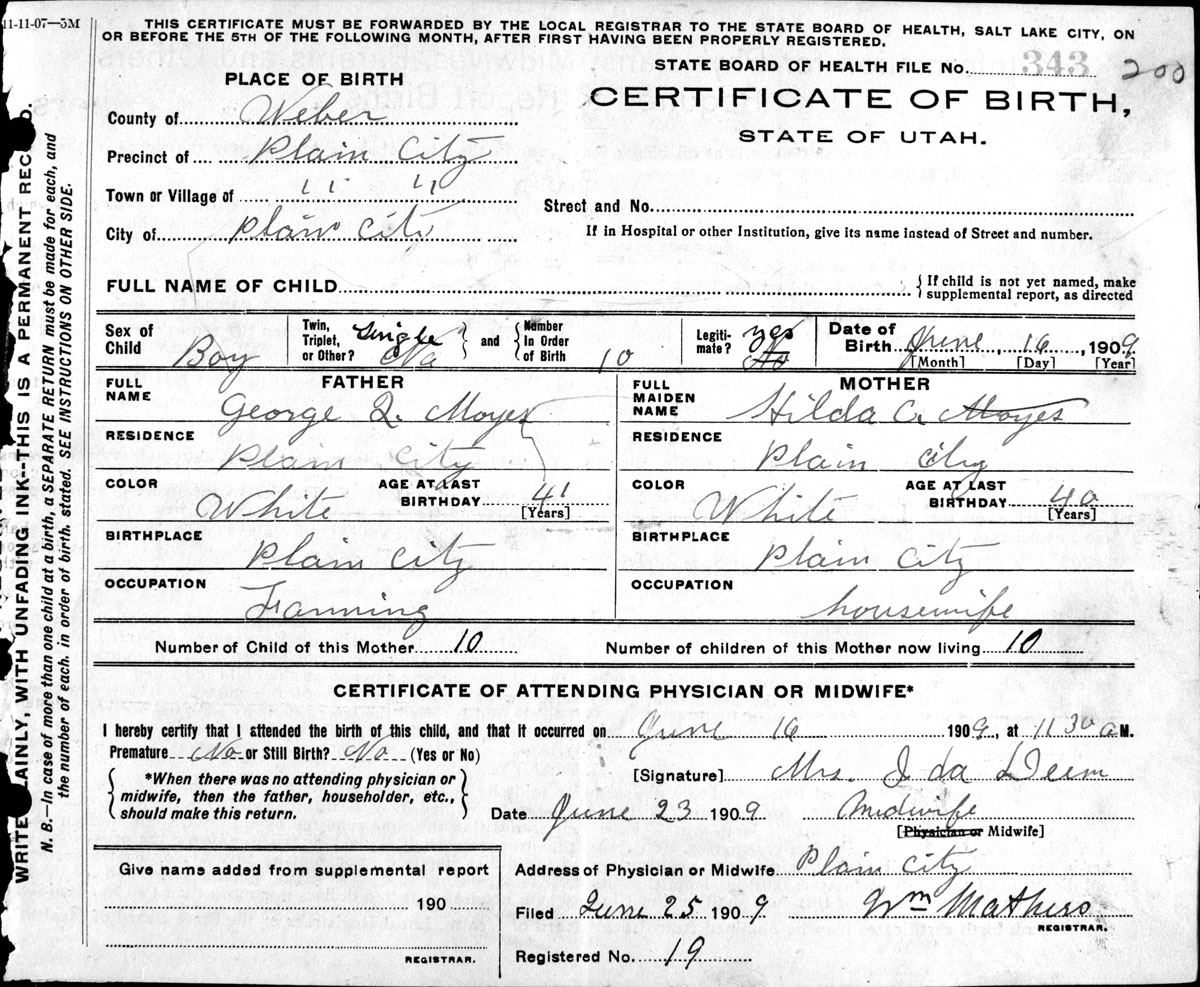 11-11-07—5M
THIS CERTIFICATE MUST BE FORWARDED BY THE LOCAL REGISTRAR TO THE STATE BOARD OF HEALTH, SALT LAKE CITY, ON
OR BEFORE THE 5TH OF THE FOLLOWING MONTH, AFTER FIRST HAVING BEEN PROPERLY REGISTERED.
STATE BOARD OF HEALTH FILE No. 343 200
PLACE OF BIRTH
CERTIFICATE OF BIRTH,
STATE OF UTAH.
County of Weber
Precinct of Plain City
Town or Village of " "
Street and No.
City of Plain City
If in Hospital or other Institution, give its name instead of Street and number.
FULL NAME OF CHILD
If child is not yet named, make
supplemental report, as directed
Sex of Child Boy
Twin, Triplet, or Other? Single No
and
Number in Order of Birth 10
Legiti-mate? yes
Date of Birth June, 16, 1909
[Month] [Day] [Year]
FATHER
FULL NAME George Q. Moyes
RESIDENCE Plain City
COLOR White
AGE AT LAST BIRTHDAY 41 [Years]
BIRTHPLACE Plain City
OCCUPATION Farming
MOTHER
FULL MAIDEN NAME Hilda C. Moyes
RESIDENCE Plain City
COLOR White
AGE AT LAST BIRTHDAY 40 [Years]
BIRTHPLACE Plain City
OCCUPATION housewife
Number of Child of this Mother 10 Number of children of this Mother now living 10
CERTIFICATE OF ATTENDING PHYSICIAN OR MIDWIFE*
I hereby certify that I attended the birth of this child, and that it occurred on June 16 1909, at 11 30 a M.
Premature No or Still Birth? No (Yes or No)
*When there was no attending physician or
midwife, then the father, householder, etc.,
should make this return.
[Signature] Mrs. Ida Deem
Date June 23 1909 Midwife
[Physician or Midwife]
Give name added from supplemental report
190
REGISTRAR.
Address of Physician or Midwife Plain City
Filed June 25 1909 Wm Mathers
REGISTRAR.
Registered No. 19
WRITE PLAINLY, WITH UNFADING INK--THIS IS A PERMANENT RECORD.
N. B.—In case of more than one child at a birth, a SEPARATE RETURN must be made for each, and
the number of each. in order of birth. stated. SEE INSTRUCTIONS ON OTHER SIDE.